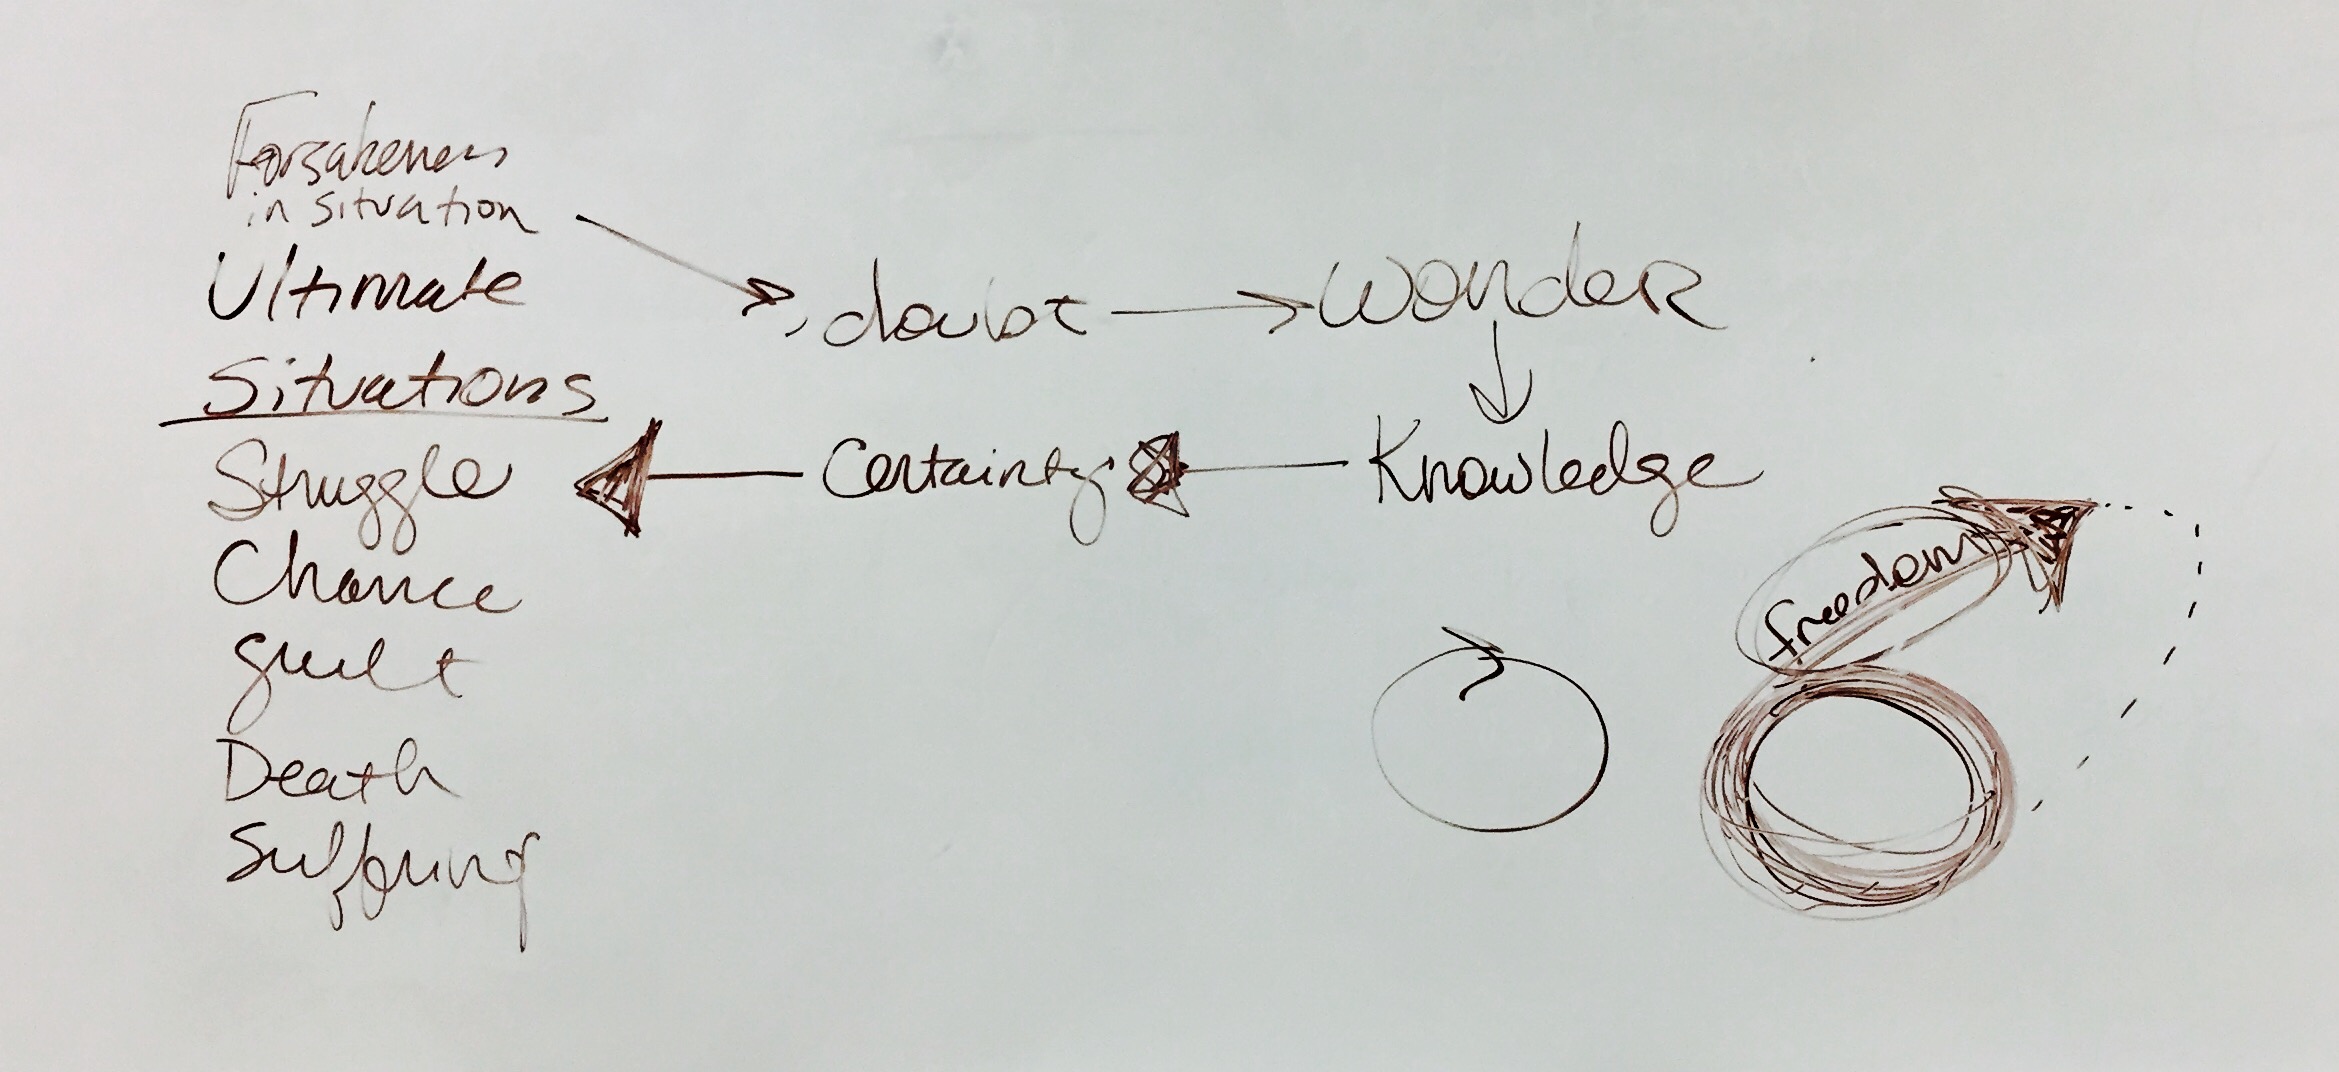 Forsakeness
in situation
Ultimate
Situations
Struggle
Chance
guilt
Death
Suffering
doubt
Wonder
Certainty
Knowledge
freedom